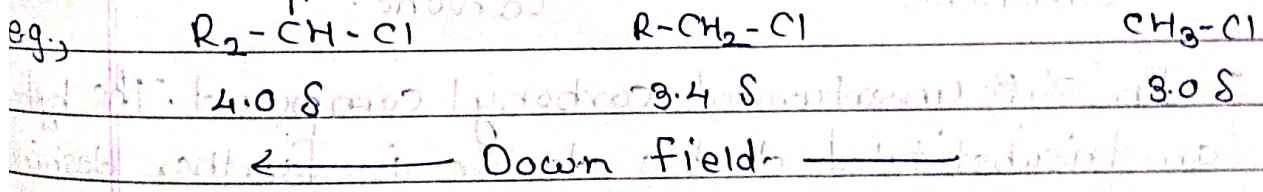 eg., R₂-CH-Cl R-CH₂-Cl CH₃-Cl
4.0 δ 3.4 δ 3.0 δ
← Down field